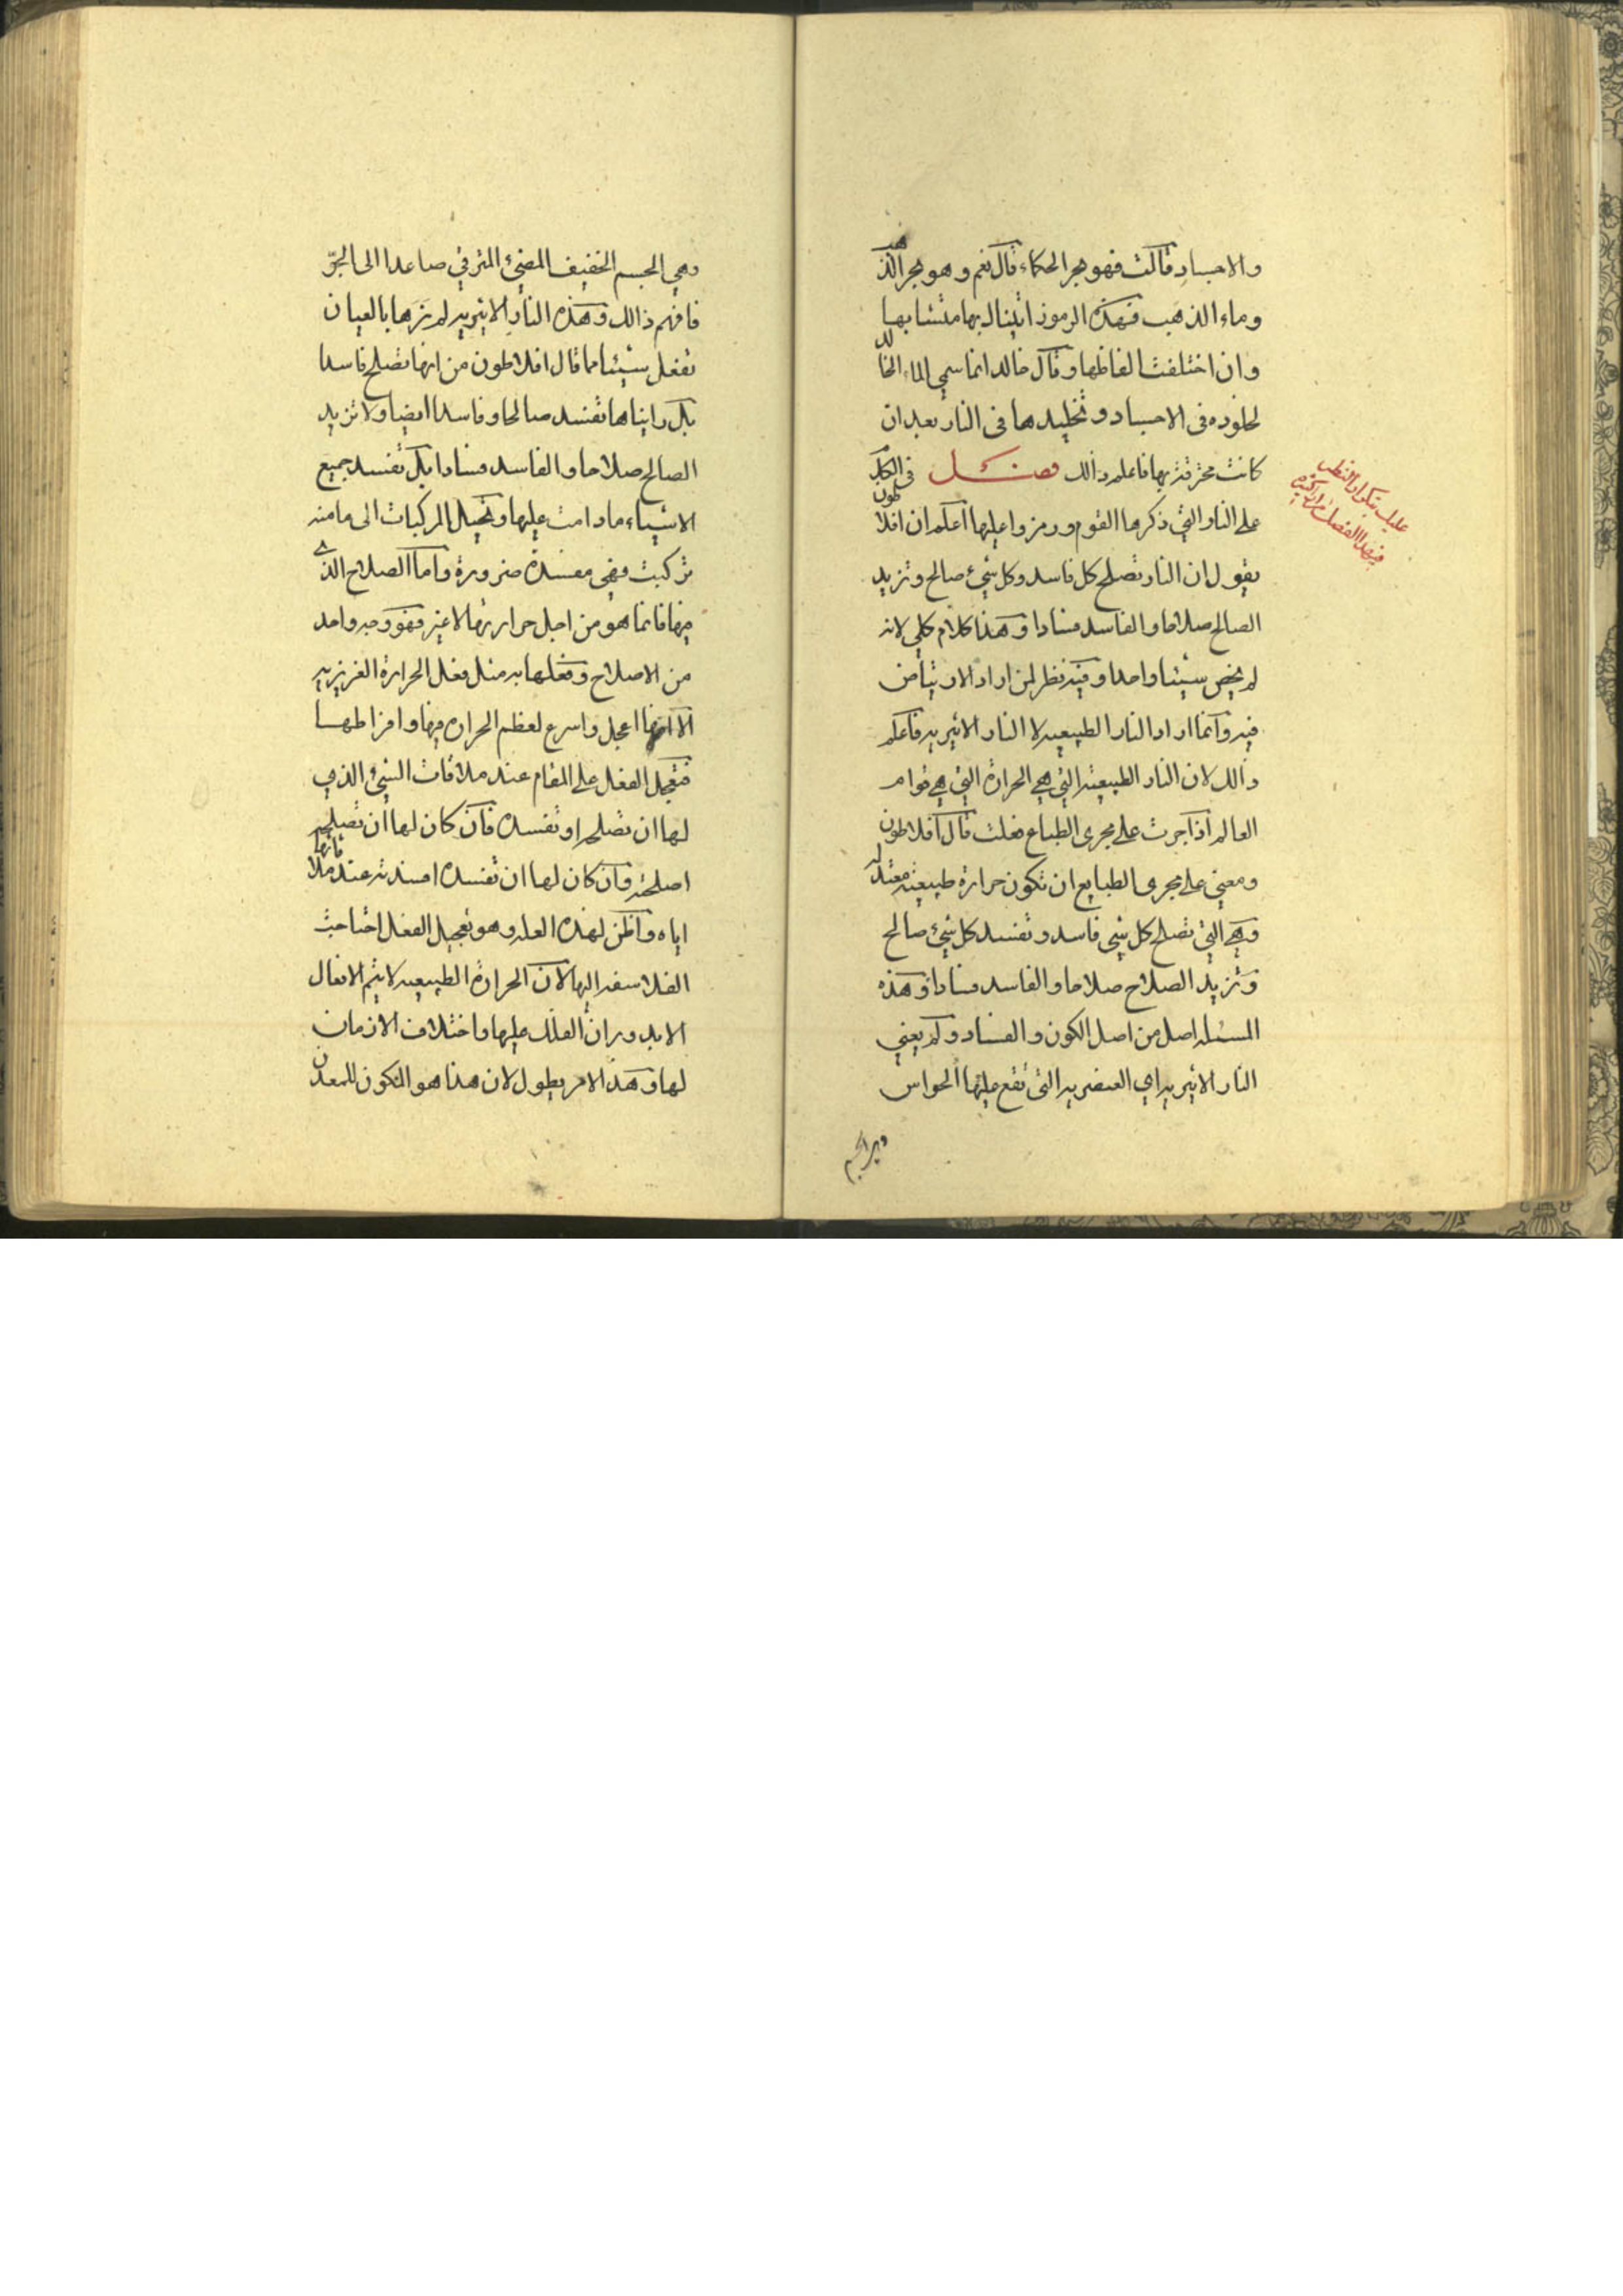 والاجساد قالت فهو حجر الحكماء قال نعم وهو حجر الذهب
وماء الذهب فهذه الرموز اتينا لك بها متشابها
وان اختلفت الفاظها وقال خالد انما سمي الماء الخالد
لخلوده في الاجساد وتخليدها في النار بعد ان
كانت محترقة بها فاعلم ذالك فصل في الكلام
على النار التي ذكرها القوم ورمزوا عليها اعلم ان افلاطون
يقول ان النار تصلح كل فاسد وكل شيء صالح وتزيد
الصالح صلاحا والفاسد فسادا وهذا كلام كلي لانه
لم يخص شيئا واحدا وفيه نظر لمن اراد الارتياض
فيه وانما اراد النار الطبيعيه لا النار الاثيريه فاعلم
ذالك لان النار الطبيعية التي هي الحرارة التي هي قوام
العالم اذا جرت على مجرى الطباع فعلت قال افلاطون
ومعنى على مجرى الطبايع ان تكون حرارة طبيعية معتدله
وهي التي تصلح كل شيء فاسد وتفسد كل شيء صالح
وتزيد الصلاح صلاحا والفاسد فسادا وهذه
المسئله اصل من اصل الكون والفساد ولم يعني
النار الاثيريه اي العنصريه التي تقع عليها الحواس
وهي الجسم
عليك بتكرار النظر
في هذا الفصل مرارا كثيرة
وهي الجسم الخفيف المضيء المترقي صاعدا الى الجوّ
فافهم ذالك وهذه النار الاثيريه لم نرها بالعيان
تفعل شيئا مما قال افلاطون من انها تصلح فاسدا
بل رايناها تفسد صالحا وفاسدا ايضا ولا تزيد
الصالح صلاحا والفاسد فسادا بل تفسد جميع
الاشياء ما دامت عليها وتحيل المركبات الى ما منه
تركبت فهي مفسدة ضرورة واما الصلاح الذي
فيها فانما هو من اجل حرارتها لا غير فهو وجه واحد
من الاصلاح وفعلها به مثل فعل الحرارة الغريزيه
الا انها اعجل واسرع لعظم الحراره فيها وافراطها
فتعجل الفعل على المقام عند ملاقات الشيء الذي
لها ان تصلحه او تفسده فان كان لها ان تصلحه
اصلحته وان كان لها ان تفسده افسدته عند ملاقاتها
اياه واظن لهذه العله وهو تعجيل الفعل احتاجت
الفلاسفه اليها لان الحرارة الطبيعيه لا يتم الافعال
الا بدوران الفلك عليها واختلاف الازمان
لها وهذا الامر يطول لان هذا هو المكون للمعدن